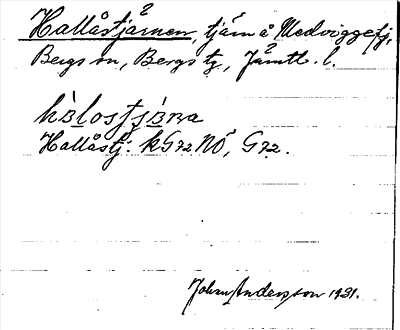 Hallåstjärnen, tjärn å Medviggefj,
Bergs sn, Bergs tg, Jämtl. l.
hàlostjàrna
Hallåstj: kG72 NÖ, G72.
Johan Andersson 1931.